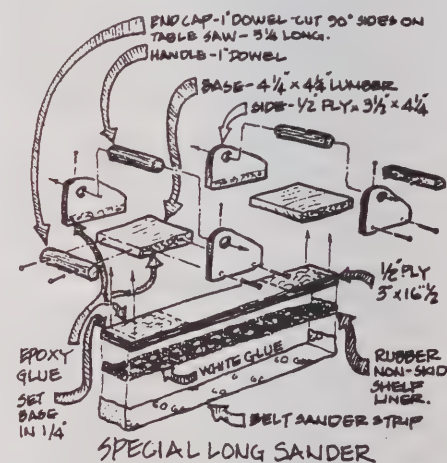 END CAP - 1" DOWEL - CUT 90° SIDES ON
TABLE SAW - 5 1/4 LONG.
HANDLE - 1" DOWEL
BASE - 4 1/4" x 4 1/4" LUMBER
SIDE - 1/2 PLY x 3 1/2" x 4 1/4
1/2" PLY
3" x 16" 1/2
EPOXY
GLUE
SET
BASE
IN 1/4"
WHITE GLUE
RUBBER
NON-SKID
SHELF
LINER.
BELT SANDER STRIP
SPECIAL LONG SANDER